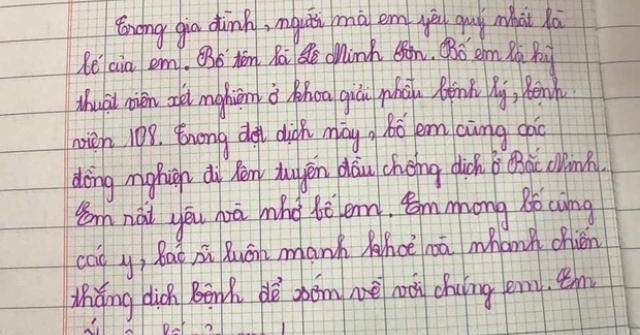 Trong gia đình, người mà em yêu quý nhất là
bố của em. Bố tên là Lê Minh Sơn. Bố em là kỹ
thuật viên xét nghiệm ở khoa giải phẫu bệnh lý, bệnh
viện 108. Trong đợt dịch này, bố em cùng các
đồng nghiệp đi lên tuyến đầu chống dịch ở Bắc Ninh.
Em rất yêu và nhớ bố em. Em mong bố cùng
các y, bác sĩ luôn mạnh khoẻ và nhanh chiến
thắng dịch bệnh để sớm về với chúng em. Em